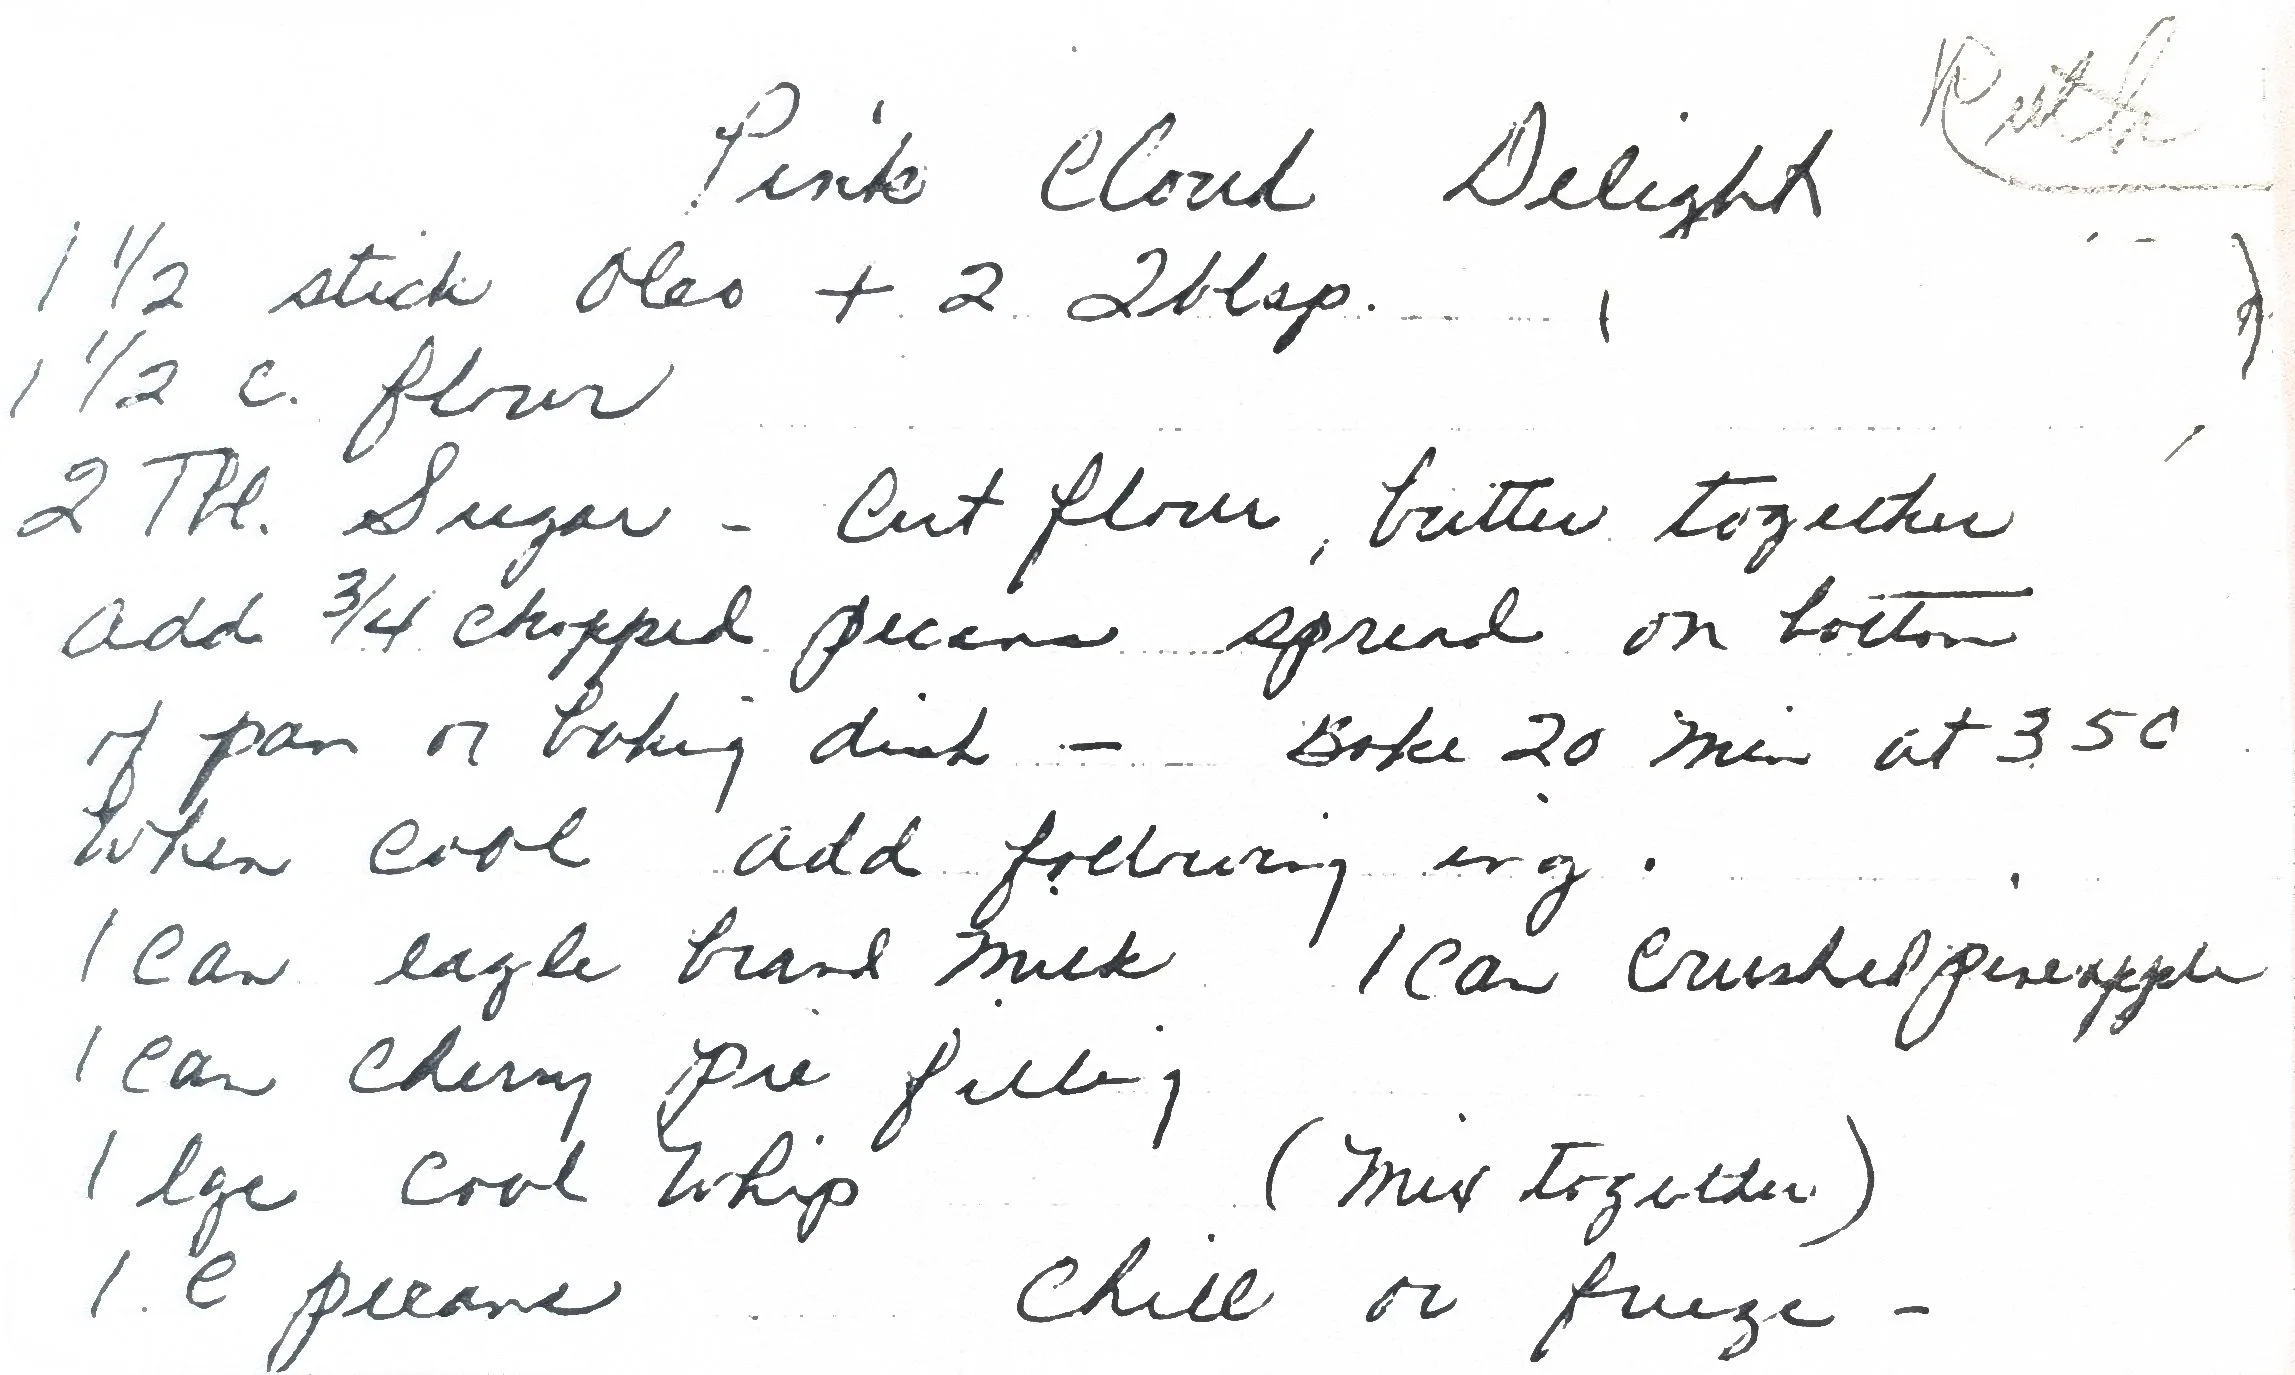 Ruth
Pink Cloud Delight
1 1/2 stick Oleo + 2 Tblsp.
1 1/2 c. flour
2 Tbl. Sugar - Cut flour, butter together
add 3/4 chopped pecans spread on bottom
of pan or baking dish - Bake 20 min at 350
When cool add following ing.
1 can eagle brand milk 1 can crushed pineapple
1 can cherry pie filling
1 lge cool whip (Mix together)
1 C pecans Chill or freeze -